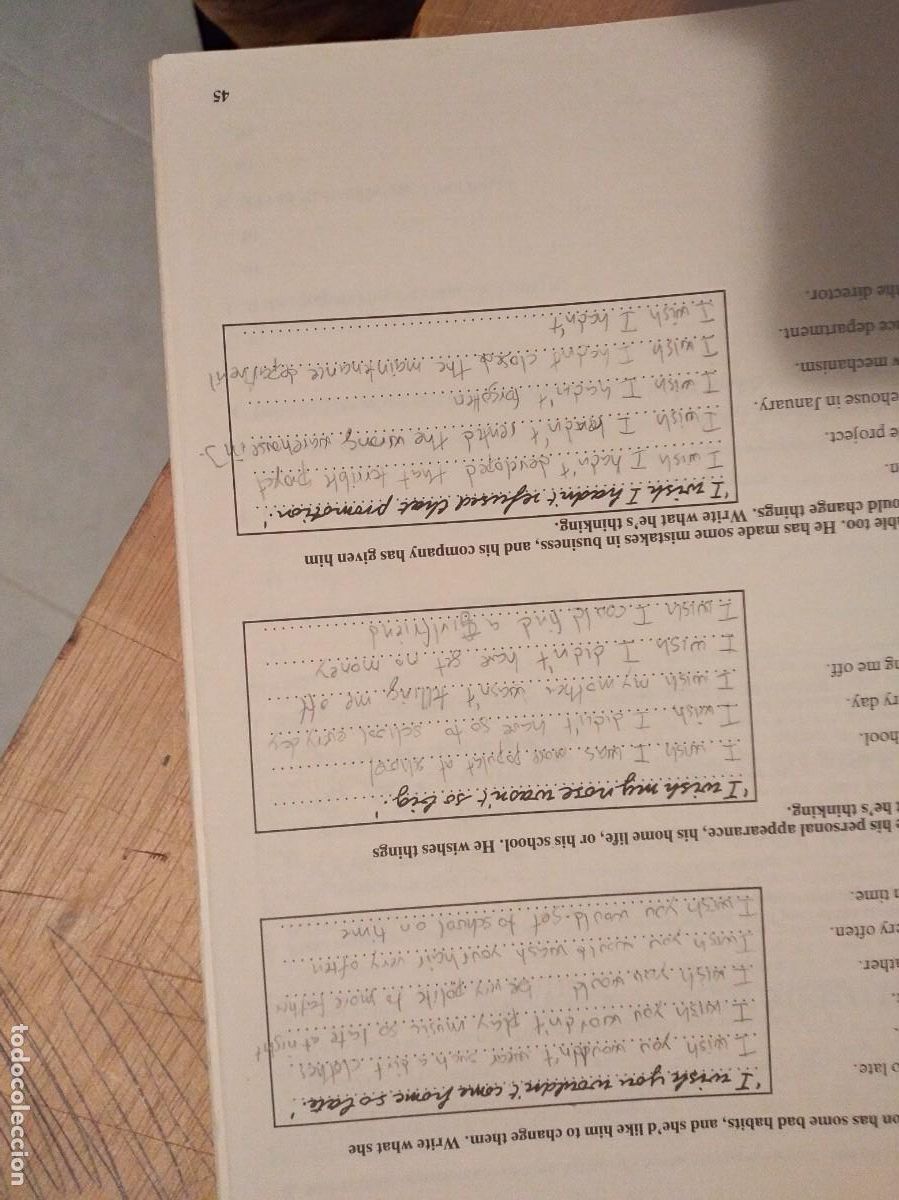 on has some bad habits, and she'd like him to change them. Write what she
o late.
'I wish you wouldn't come home so late.'
I wish you wouldn't wear such a dirt clothes.
I wish you wouldn't play music so late at night
I wish you would be very polite to more father
ather.
I wish you would wash your hair very often
ery often.
I wish you would got to school on time
n time.
e his personal appearance, his home life, or his school. He wishes things
t he's thinking.
'I wish my nose wasn't so big.'
I wish I was more popular at school
hool.
I wish I didn't have so to school every day
ry day.
I wish my mother wasn't telling me off
ng me off.
I wish I didn't have get no money
I wish I could find a girlfriend
able too. He has made some mistakes in business, and his company has given him
ould change things. Write what he's thinking.
'I wish I hadn't refused that promotion.'
n.
I wish I hadn't developed that terrible proyect
e project.
I wish I hadn't sented the wrong warehouse in J
ehouse in January.
I wish I hadn't forgotten
w mechanism.
I wish I hadn't closed the maintenance department
ce department.
I wish I hadn't
the director.
45
todocoleccion